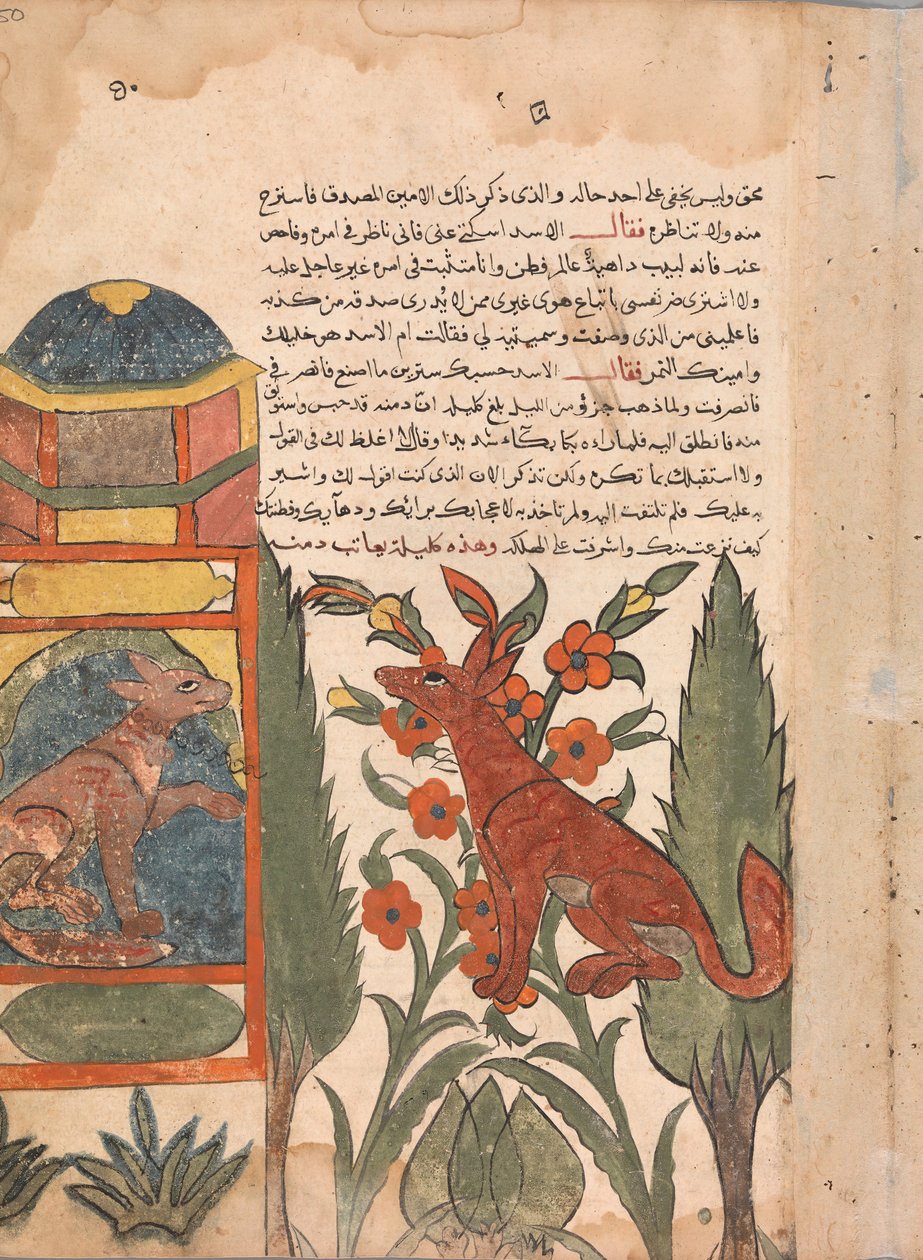 50
محق وليس يخفي على احد حاله والذى ذكر ذلك الامين المصدق فاسترح
منه ولا تناظره فقال الاسد اسكتى عنى فانى ناظر فى امره وفاحص
عنه فانه لبيب داهية عالم فطن وانا متثبت فى امره غير عاجل عليه
ولا اشترى ضر نفسى باتباع هوى غيرى ممن لا يُدرى صدقه من كذبه
فاعلمينى من الذى وصفت وسميتيه لي فقالت ام الاسد هو خليلك
وامينك النمر فقال الاسد حسبك سترين ما اصنع فانصرفي
فانصرفت ولما ذهب جزؤ من الليل بلغ كليله انّ دمنه قد حبس واستوثق
منه فانطلق اليه فلما راءه بكا بكآء شديدا وقال لا اغلظ لك فى القول
ولا استقبلك بما تكره ولكن تذكر الان الذى كنت اقول لك واشير
به عليك فلم تلتفت اليه ولم تأخذ به لاعجابك برائك ودهآيك وفطنتك
كيف نزعت منك واشرفت على الهلكه وهذه كليلة يعاتب دمنه